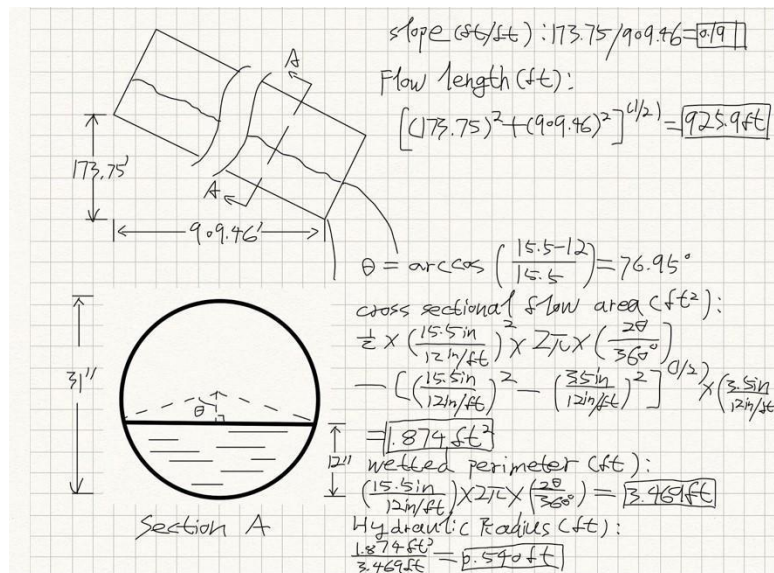 slope (ft/ft) : 173.75/909.46 = 0.191
Flow length (ft) :
[(173.75)² + (909.46)²]^(1/2) = 925.9ft
A
A
173.75'
909.46'
θ = arccos (15.5-12/15.5) = 76.95°
cross sectional flow area (ft²) :
1/2 × (15.5in/12in/ft)² × 2π × (2θ/360°)
- [(15.5in/12in/ft)² - (3.5in/12in/ft)²]^(1/2) × (3.5in/12in/ft
= 1.874 ft²
31"
θ
12"
wetted perimeter (ft) :
(15.5in/12in/ft) × 2π × (2θ/360°) = 3.469ft
Section A
Hydraulic Radius (ft) :
1.874ft²/3.469ft = 0.540ft